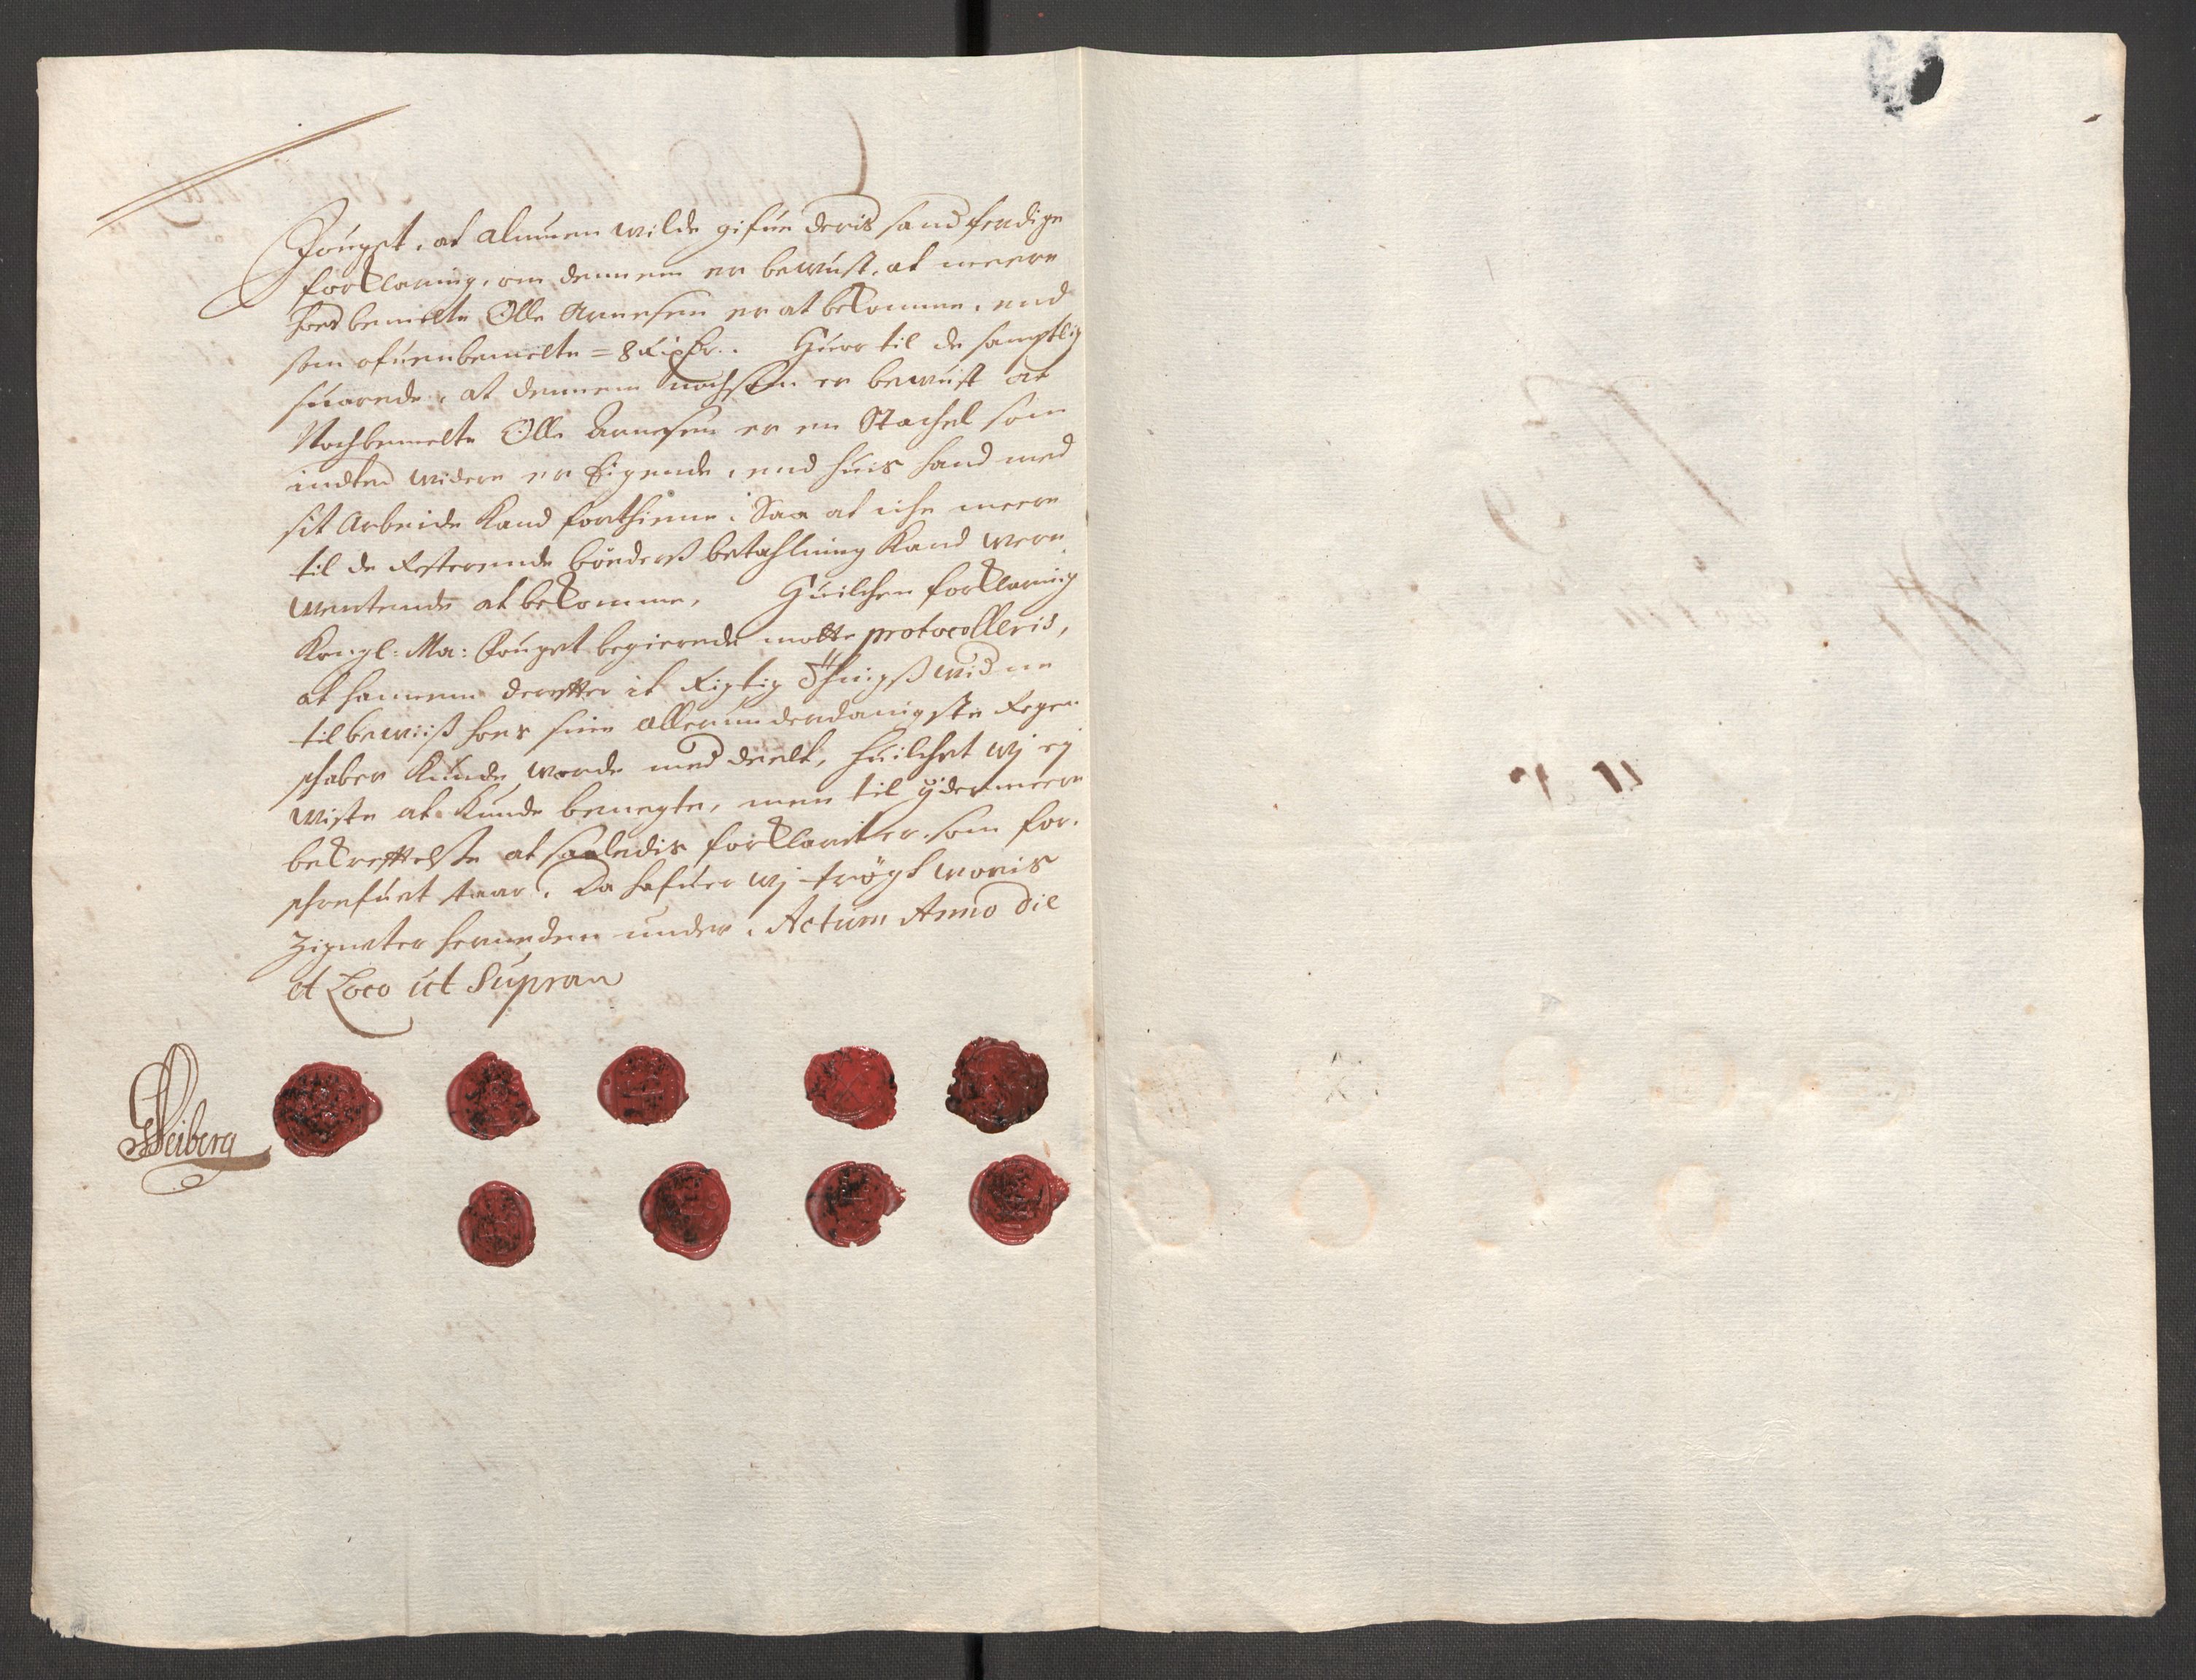 Fouget, at almuen wilde gifue deris sandferdige
forklaring, om dennem er bewust, at meere
hoes bemelte Olle Arnesen er at bekomme, end
som ofuenbemelte = 8 Rixdr. Huor til de samptlig
suarede, at dennem nochsom er bewust at
Nochbemelte Olle Arnesen er en Stachel som
indted widere er Eigende, end huis hand med
sit Arbeide kand forthienne, Saa at iche meere
til de Resterende bønders betahlning kand were
wentende at bekomme, Huilchen forklaring
Kongl: Ma: Fouget begierede motte protocolleris,
at hannem derefter it Rigtig Thingswidne
til bewiis hoes sine allerunderdanigste Regen
schaber kunde worde med deelt, huilchet wj ej
wiste at kunde benegte, men til ydermeere
bekreftelse at saaledis forklaret er som for-
schrefuet staar, Da hafuer wj trøgt woris
Zigneter herneden under, Actum Anno die
et Loco ut Supran
Seiberg